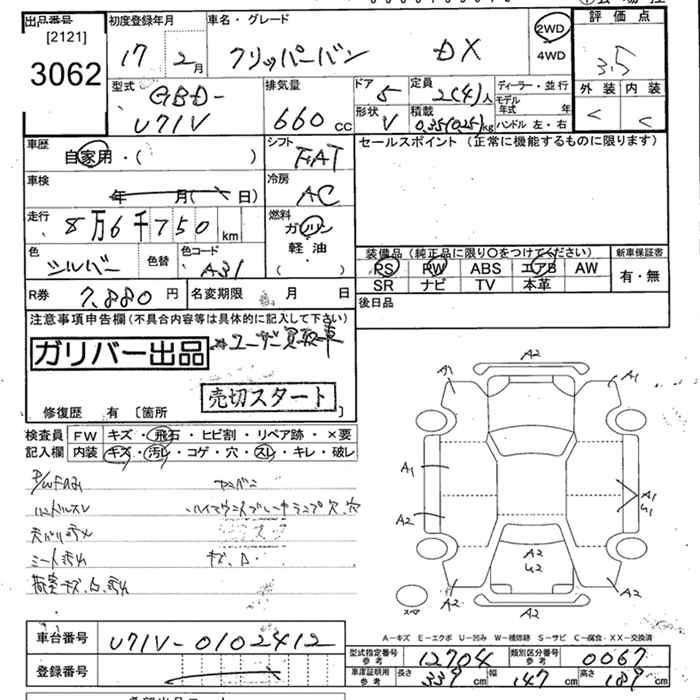 出品番号
[2121]
3062
初度登録年月
17 2月
車名・グレード
フリッパーバン DX
2WD
4WD
評価点
3.5
外装 内装
C C
型式
GBD-
U71V
排気量
660 cc
ドア 5
形状 V
定員 2(4)人
積載 0.35(0.25)kg
ディーラー・並行
モデル年式 年
ハンドル 左・右
車歴
自家用・( )
シフト
FAT
車検
年 月( 日)
冷房
AC
走行
8万6千750 km
燃料
ガソリン
軽油
( )
色
シルバー
色替
色コード
A31
R券 7,880円
名変期限 月 日
セールスポイント (正常に機能するものに限ります)
装備品 (純正品に限り〇をつけてください)
PS PW ABS エアB AW
SR ナビ TV 本革
新車保証書
有・無
後日品
注意事項申告欄(不具合内容等は具体的に記入して下さい)
ガリバー出品
※ユーザー買取車
売切スタート
修復歴 有 〔箇所 〕
検査員
記入欄
FW キズ・飛石・ヒビ割・リペア跡・×要
内装 キズ・汚レ・コゲ・穴・スレ・キレ・破レ
ハンドルスレ
ハイマウントブレーキランプ穴、穴
シート汚レ
A2
A1 A1
A1
A2
A1
U1
A2
U2
A2 A2
A2
スペア
A-キズ E-エクボ U-凹み W-補修跡 S-サビ C-腐食・XX-交換済
車台番号
U71V-0102412
登録番号
型式指定番号
参考
12704
類別区分番号
参考
0067
車庫証明用
参考
長さ 339 cm
幅 147 cm
高さ 189 cm